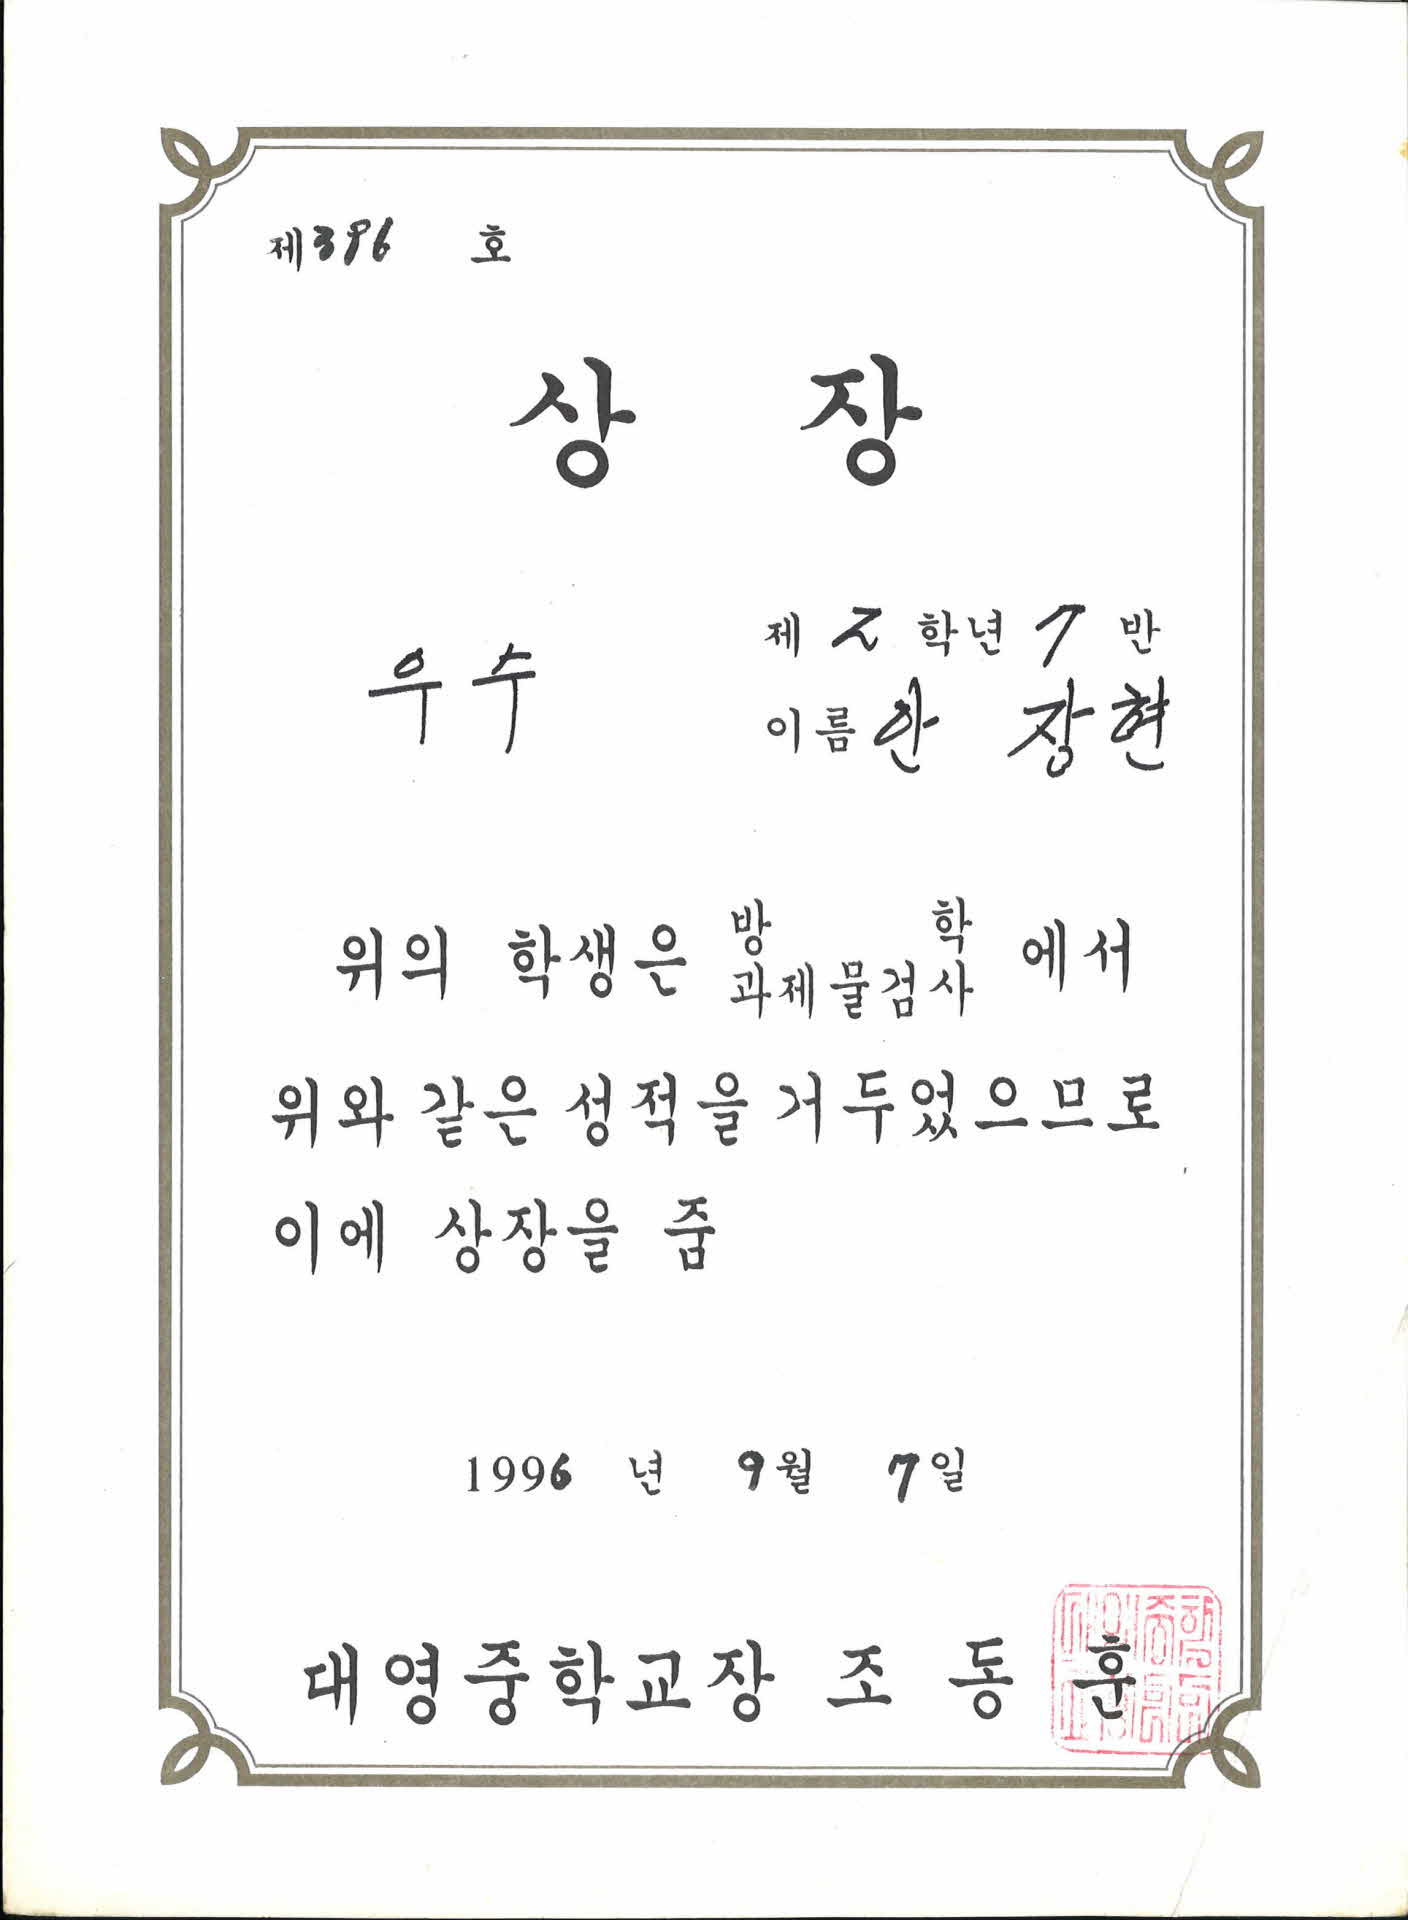 제396 호
상 장
우수
제 2 학년 7 반
이름 안 장현
위의 학생은 방학 과제물검사 에서
위와 같은 성적을 거두었으므로
이에 상장을 줌
1996 년 9월 7일
대영중학교장 조 동 훈